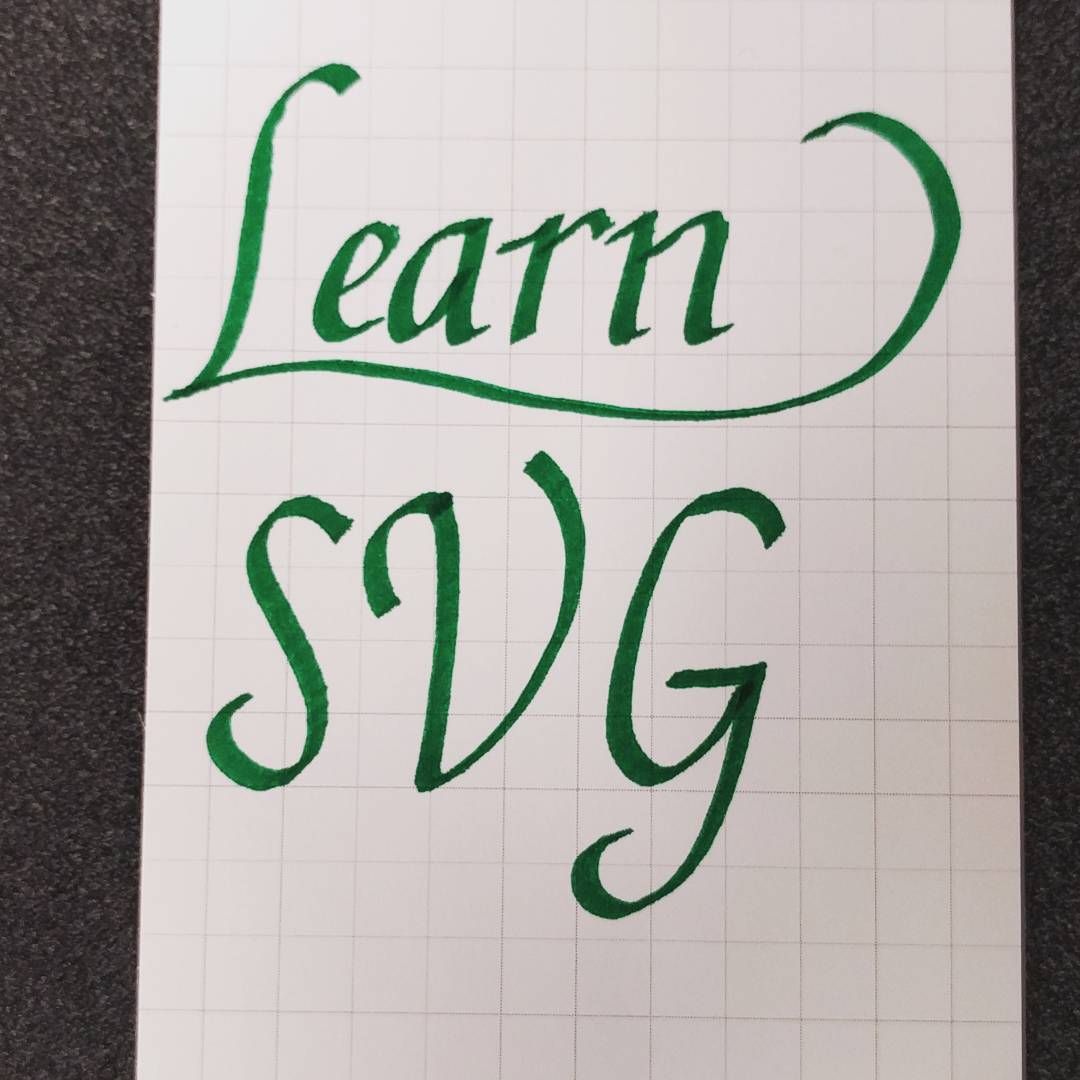 Learn
SVG